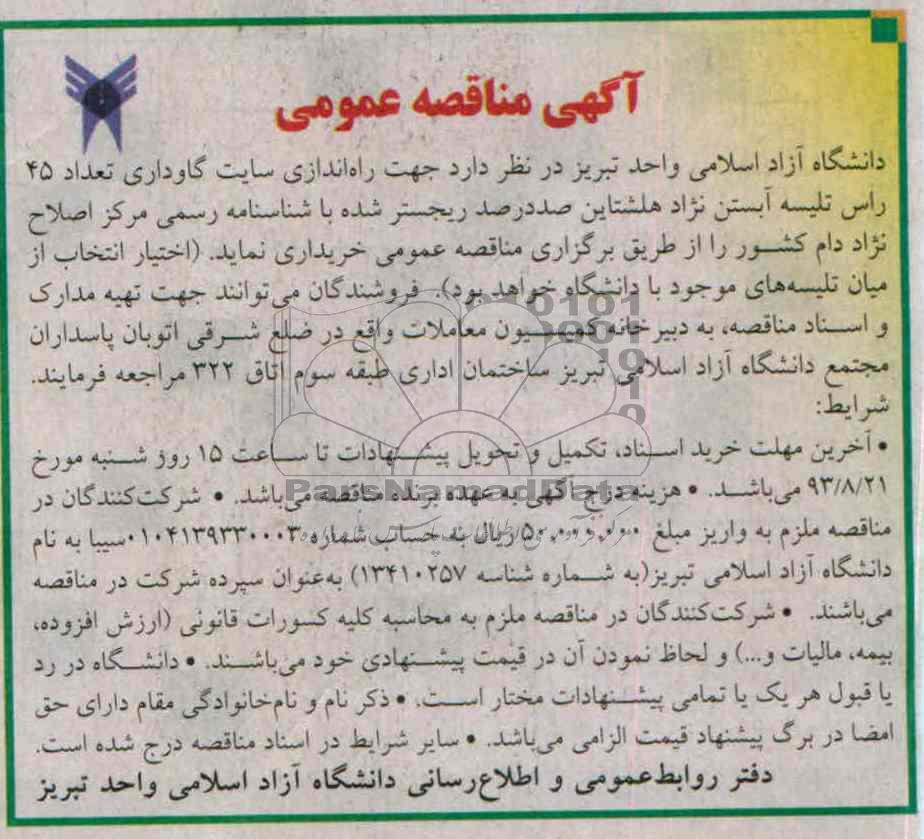 آگهی مناقصه عمومی
دانشگاه آزاد اسلامی واحد تبریز در نظر دارد جهت راه‌اندازی سایت گاوداری تعداد ۴۵
راس تلیسه آبستن نژاد هلشتاین صددرصد ریجستر شده با شناسنامه رسمی مرکز اصلاح
نژاد دام کشور را از طریق برگزاری مناقصه عمومی خریداری نماید. (اختیار انتخاب از
میان تلیسه‌های موجود با دانشگاه خواهد بود). فروشندگان می‌توانند جهت تهیه مدارک
و اسناد مناقصه، به دبیرخانه کمیسیون معاملات واقع در ضلع شرقی اتوبان پاسداران
مجتمع دانشگاه آزاد اسلامی تبریز ساختمان اداری طبقه سوم اتاق ۳۲۲ مراجعه فرمایند.
شرایط:
• آخرین مهلت خرید اسناد، تکمیل و تحویل پیشنهادات تا ساعت ۱۵ روز شنبه مورخ
۹۳/۸/۲۱ می‌باشد. • هزینه درج آگهی به عهده برنده مناقصه می‌باشد. • شرکت‌کنندگان در
مناقصه ملزم به واریز مبلغ ۵۰,۰۰۰,۰۰۰ ریال به حساب شماره ۰۱۰۴۱۳۹۳۳۰۰۰۳ سیبا به نام
دانشگاه آزاد اسلامی تبریز(به شماره شناسه ۱۳۴۱۰۲۵۷) به‌عنوان سپرده شرکت در مناقصه
می‌باشند. • شرکت‌کنندگان در مناقصه ملزم به محاسبه کلیه کسورات قانونی (ارزش افزوده،
بیمه، مالیات و...) و لحاظ نمودن آن در قیمت پیشنهادی خود می‌باشند. • دانشگاه در رد
یا قبول هر یک یا تمامی پیشنهادات مختار است. • ذکر نام و نام‌خانوادگی مقام دارای حق
امضا در برگ پیشنهاد قیمت الزامی می‌باشد. • سایر شرایط در اسناد مناقصه درج شده است.
دفتر روابط‌عمومی و اطلاع‌رسانی دانشگاه آزاد اسلامی واحد تبریز
ParsNamadData